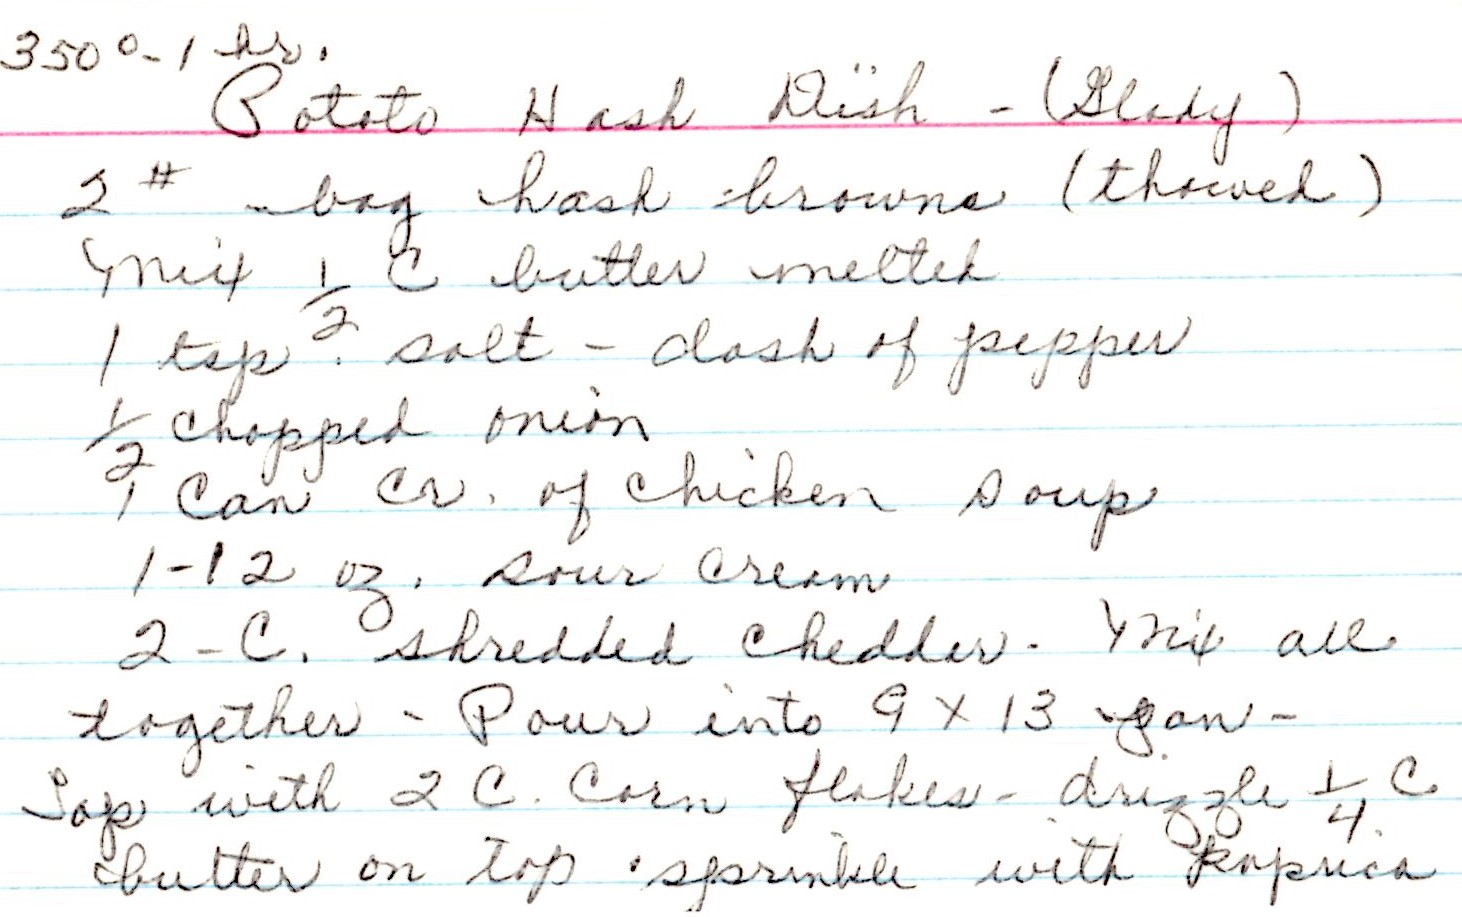 350° - 1 hr.
Potato Hash Dish - (Glady)
2 # - bag hash browns (thawed)
Mix 1/2 C butter melted
1 tsp. salt - dash of pepper
1/2 chopped onion
1 can cr. of chicken soup
1-12 oz. sour cream
2 - C. shredded chedder - Mix all
together - Pour into 9 X 13 pan -
Top with 2 C. Corn flakes - drizzle 1/4 C
butter on top . sprinkle with Paprica